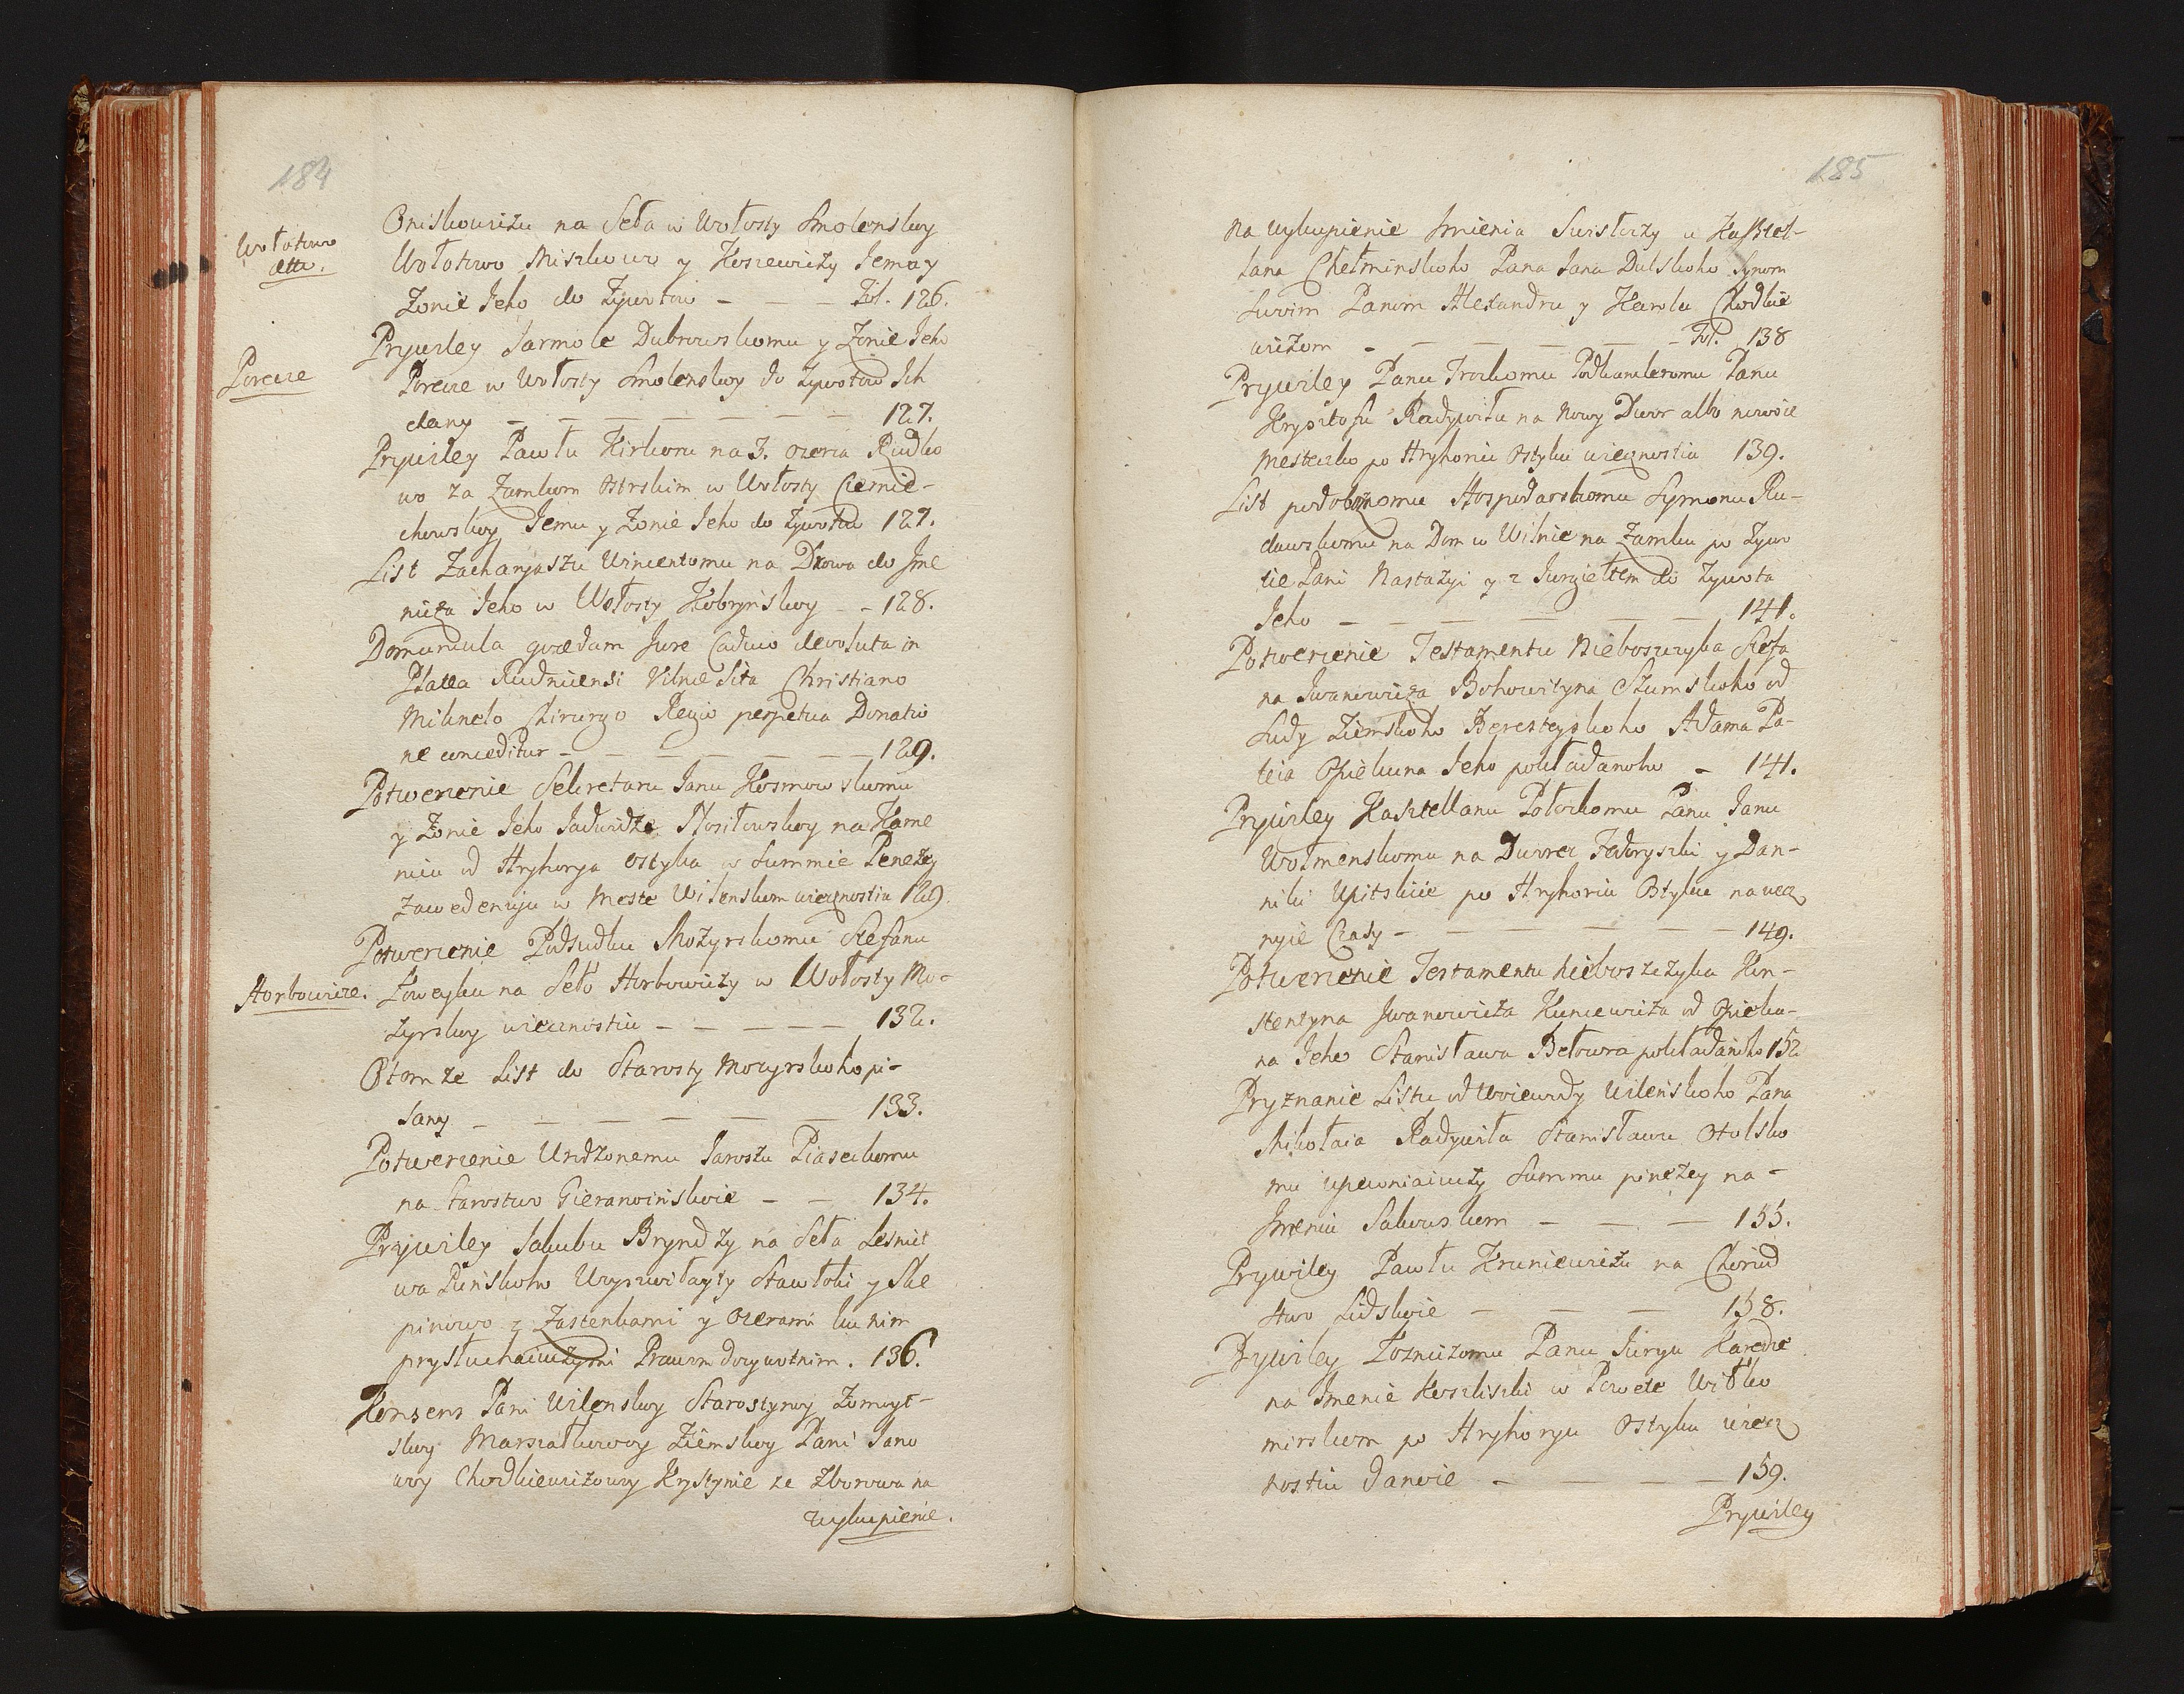 184
Wołotowo
etc.
Oniskowiżu na Seła w Wołosty Smolenskoy
Wołotowo Miszkowo y Kosiewiży Jemu y
Zonie Jeho do Zywotow - - - Fol. 126.
Porecze
Prywiley Jarmole Dubrowskomu y Zonie Jeho
Porecze w Wołosty Smolenskoy do Zywotow Jch
dany - - - - - - 127.
Prywiley Pawłu Kirkoru na 3. ozera Rudko
wo za Zamkom Ostrskim w Wołosty Czernie-
chowskoy Jemu y Zonie Jeho do Zywotow 127.
List Zacharyaszu Wincentomu na Drowa do Jme
niża Jeho w Wołosty Kobrynskoy - - 128.
Domuncula quædam Jure Caduco devoluta in
Platea Rudnicensi Vilnæ Sita Christiano
Milnelo Chirurgo Regio perpetua Donatio
ne conceditur - - - - - - 129.
Potwerzenie Sekretaru Janu Kosmowskomu
y Zonie Jeho Jadwidze Nositowskoy na Kame
nicu od Hryhorya Ostyka w Summie Penezey
Zawedenuju w Meste Wilenskom wiecznostiu 129.
Potwerzenie Podsudku Mozyrskomu Stefanu
Horbowicze.
Łoweyku na Seło Horbowiży w Wołosty Mo-
zyrskoy wiecznostiu - - - - - 132.
O tom ze List do Starosty Mozyrskoho pi-
sany - - - - - 133.
Potwerzenie Urodzonemu Jaroszu Piaseckomu
na Starostwo Gieranoinskoie - - 134.
Prywiley Jakubu Bryndzy na Seła Lesnict
wa Punskoho Wyszwiłayty Stawtoki y Ske
pinowo z Zastenkami y Ozerami ku nim
prysłuchaiuczymi Prawom dozywotnim. 136.
Konsens Pani Wilenskoy Starostynoy Zomoyt-
skoy Marszałkowoy Ziemskoy Pani Jano
woy Chodkiewiżowoy Krystynie ze Zborowa na
wykupienie.
185
na wykupienie Jmienia Swistoczy u Kasztel-
lana Chełminskoho Pana Jana Dulskoho Synom
Swoim Panom Alexandru y Karolu Chodkie
wiżom - - - - - Fol. 138
Prywiley Panu Trockomu Podkomoromu Panu
Krysztofu Radywiłu na Nowy Dwor albo nowoie
Mesteczko po Hryhoriu Ostyku wiecznostiu 139.
List podobnomu Hospodarskomu Symonu Ru-
dawskomu na Dom w Wilnie na Zamku po Zywo
tie Pani Nastazyi y z Jurgieltem do Zywota
Jeho - - - - - 141.
Potwerzenie Testamentu Nieboszczyka Stefa
na Jwanowiża Bohowityna Szumskoho od
Sudy Ziemskoho Beresteyskoho Adama Po-
teia Opiekuna Jeho pokładanoho - 141.
Prywiley Kasztellanu Połockomu Panu Janu
Wołmenskomu na Dworec Fedoryszki y Dan-
niki Upitskiie po Hryhoriu Ostyku na wecz
nyie Czasy - - - - - 149.
Potwerzenie Testamentu nieboszczyka Kon-
stentyna Jwanowiża Kuncewiża od Opieku-
na Jeho Stanisława Bełowra pokładanoho 152
Pryznanie Listu od Woiewody Wilenskoho Pana
Mikołaia Radywiła Stanisławu Otulsko
mu upewniaiuczy Summu pinezey na-
Jmeniu Sakowskom - - - 155.
Prywiley Pawłu Kruniewiżu na Chorud
stwo Lidskoie - - - 158.
Prywiley Łoznużomu Panu Juryu Haredie
na Jmenie Koszliszki w Powete Wiłko
mirskom po Hryhoryu Ostyku wiecz
nostiu danoie - - - - 159.
Prywiley